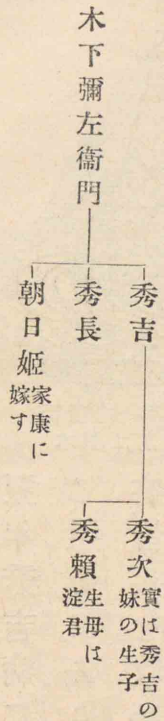 木下彌左衞門
秀吉
秀長
朝日姫
家康に
嫁す
秀次
實は秀吉の
妹の生子
秀賴
生母は
淀君